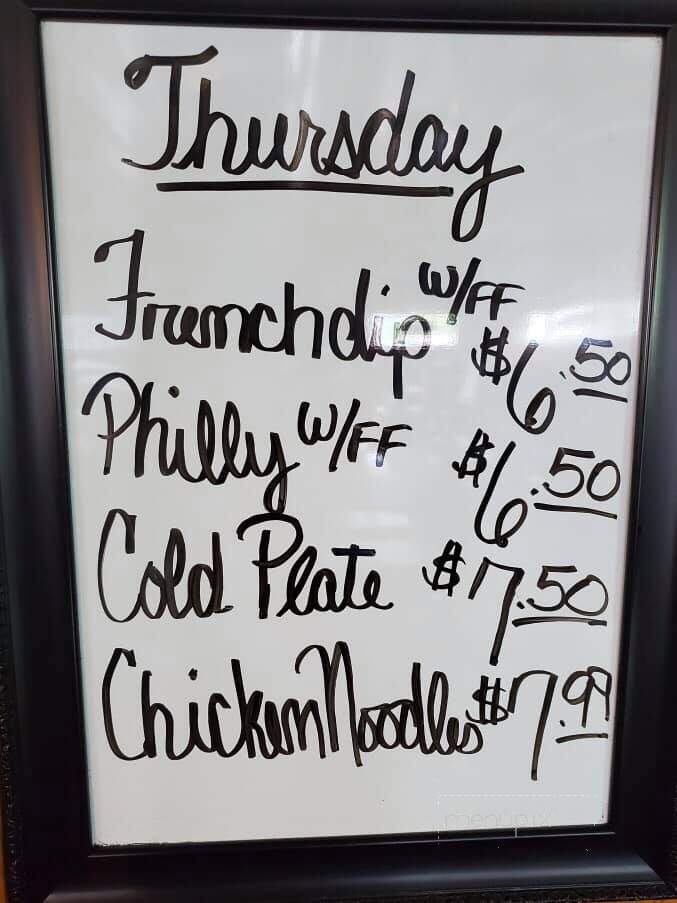 Thursday
Frenchdip w/FF $6.50
Philly w/FF $6.50
Cold Plate $7.50
Chicken Noodles $7.99